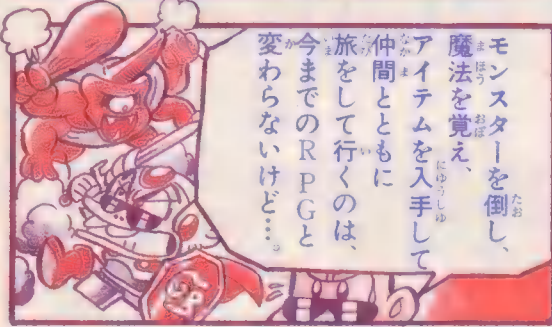 モンスターを倒し、
魔法を覚え、
アイテムを入手して
仲間とともに
旅をして行くのは、
今までのRPGと
変わらないけど…。